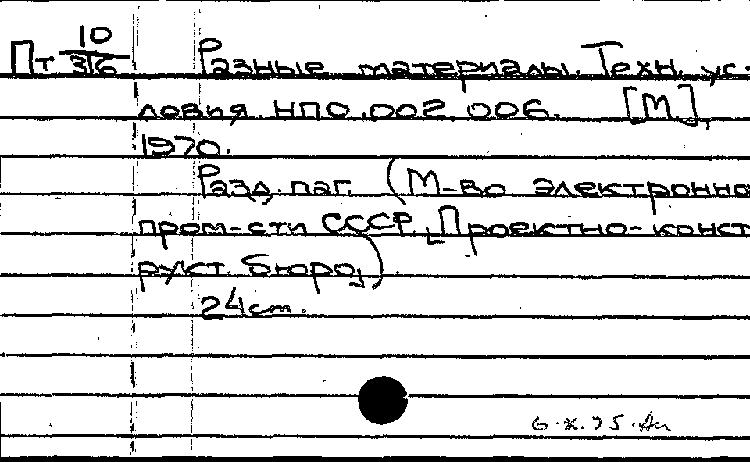 Пт 10/316 Разные материалы. Техн. ус-
ловия НПО.002.006. [М],
1970.
Разд. паг. (М-во электронно
пром-сти СССР. [Проектно-конст
рукт. бюро])
24 cm.
6.X.75.